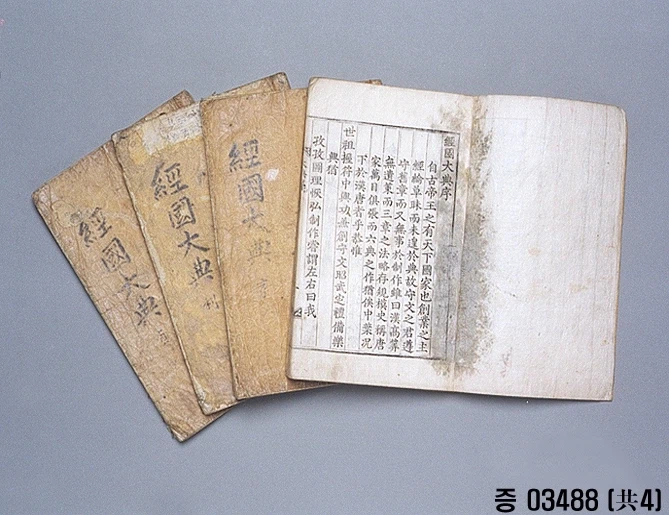 經國大典
經國大典 刑
經國大典
經國大典序
自古帝王之有天下國家也創業之主
經綸草昧而未遑於典故守文之君遵
守舊章而又無事於制作雖曰漢高算
無遺策而三章之法略存規模史稱唐
家萬目俱張而六典之作猶俟中葉況
下於漢唐者乎恭惟
世祖握符中興功兼創守文昭武定禮備樂
興猶
孜孜圖理恢弘制作嘗謂左右曰我
증 03488 (共4)